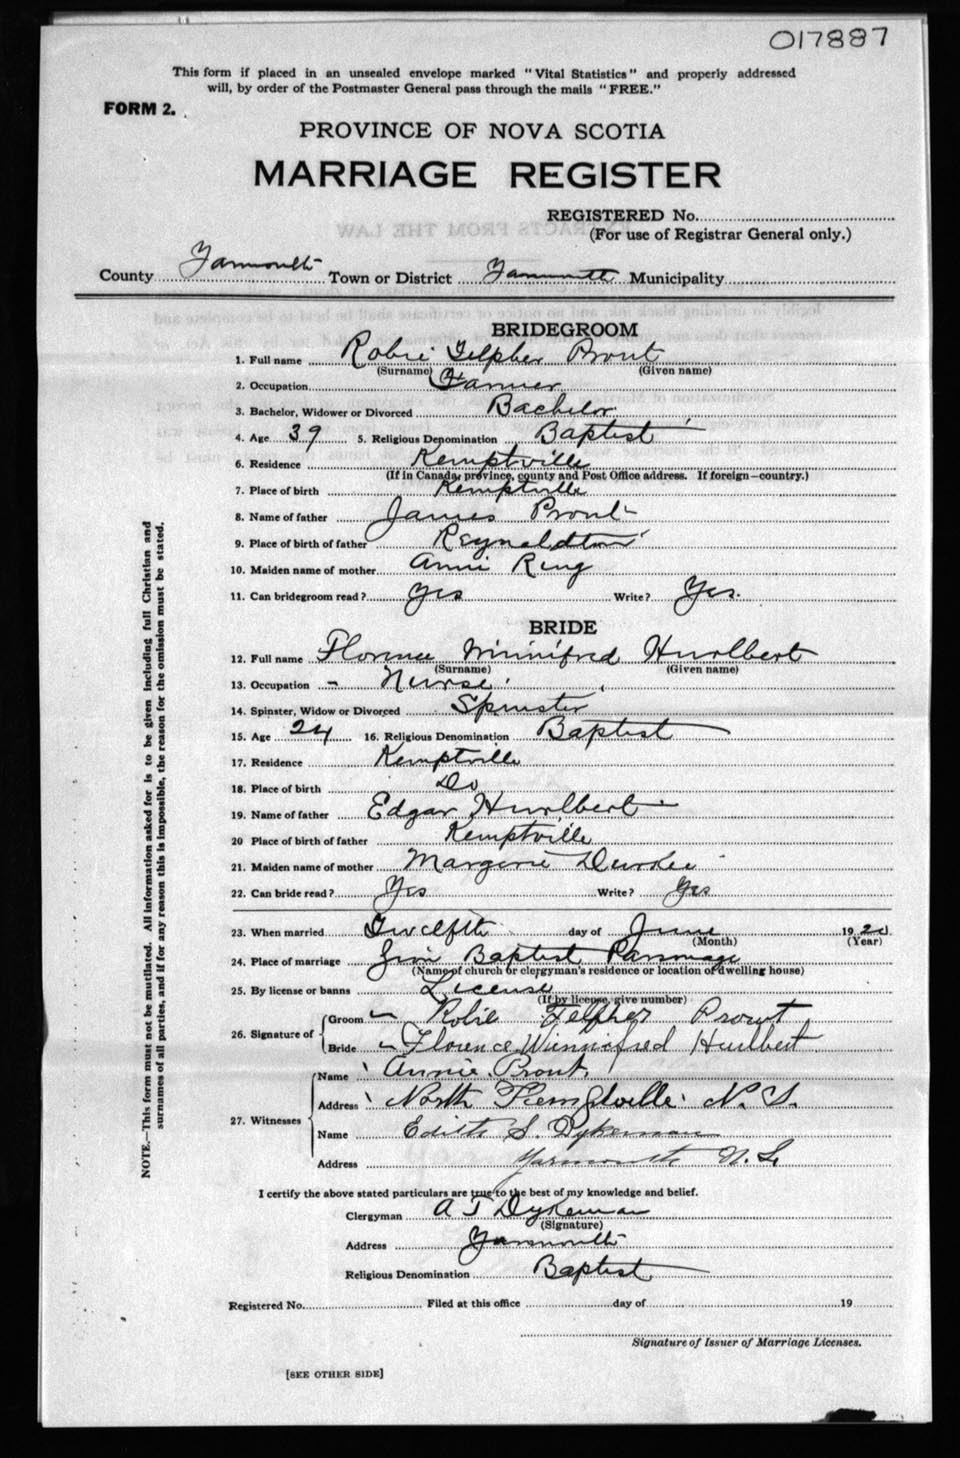 017887
This form if placed in an unsealed envelope marked "Vital Statistics" and properly addressed
will, by order of the Postmaster General pass through the mails "FREE."
FORM 2.
PROVINCE OF NOVA SCOTIA
MARRIAGE REGISTER
REGISTERED No.
(For use of Registrar General only.)
County Yarmouth Town or District Yarmouth Municipality
BRIDEGROOM
1. Full name Robie Telpher Prout
(Surname) (Given name)
2. Occupation Farmer
3. Bachelor, Widower or Divorced Bachelor
4. Age 39 5. Religious Denomination Baptist
6. Residence Kemptville
(If in Canada, province, county and Post Office address. If foreign—country.)
7. Place of birth Kemptville
8. Name of father James Prout
9. Place of birth of father Reynoldton
10. Maiden name of mother Annie Ring
11. Can bridegroom read? Yes Write? Yes.
BRIDE
12. Full name Florence Winnifred Hurlbert
(Surname) (Given name)
13. Occupation - Nurse
14. Spinster, Widow or Divorced Spinster
15. Age 24 16. Religious Denomination Baptist
17. Residence Kemptville
18. Place of birth Do
19. Name of father Edgar Hurlbert
20 Place of birth of father Kemptville
21. Maiden name of mother Margerie Durkee
22. Can bride read? Yes Write? Yes
23. When married Twelfth day of June 1920
(Month) (Year)
24. Place of marriage Baptist Parsonage
(Name of church or clergyman's residence or location of dwelling house)
25. By license or banns License
(If by license, give number)
26. Signature of Groom Robie Telpher Prout
Bride Florence Winnifred Hurlbert
27. Witnesses Name Annie Prout,
Address North Kemptville N. S.
Name Edith S. Dykeman
Address Yarmouth N. S.
I certify the above stated particulars are true to the best of my knowledge and belief.
Clergyman A J Dykeman
(Signature)
Address Yarmouth
Religious Denomination Baptist
Registered No. Filed at this office day of 19
Signature of Issuer of Marriage Licenses.
[SEE OTHER SIDE]
NOTE.—This form must not be mutilated. All information asked for is to be given including full Christian and
surnames of all parties, and if for any reason this is impossible, the reason for the omission must be stated.